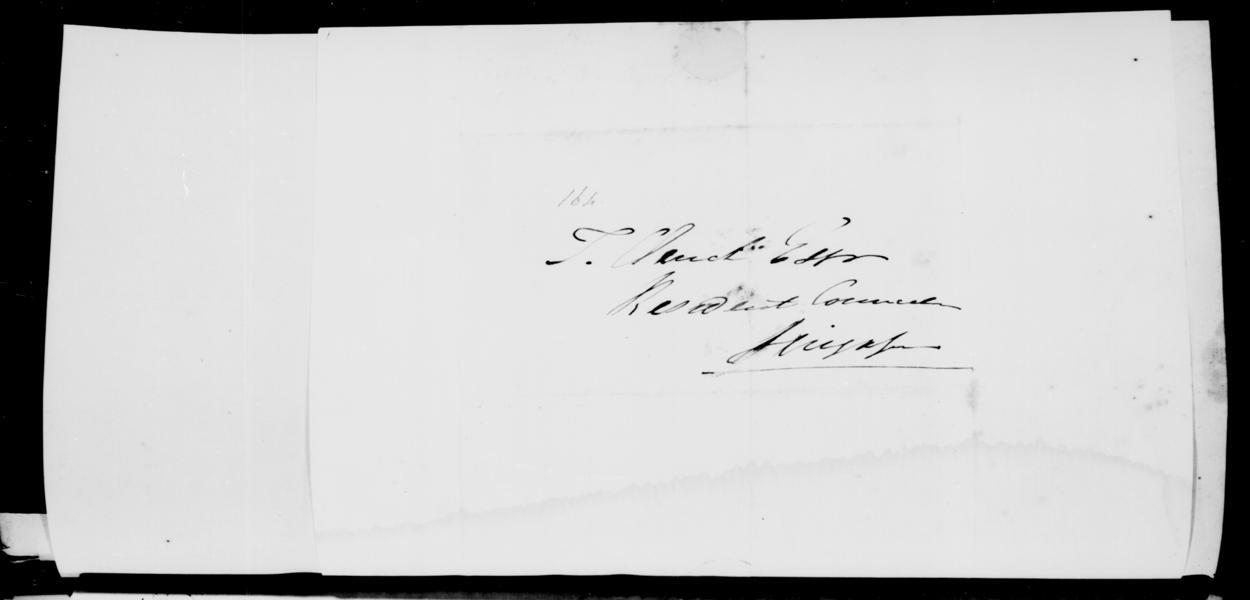 164
T. Church Esqr
Resident Councillor
Singapore